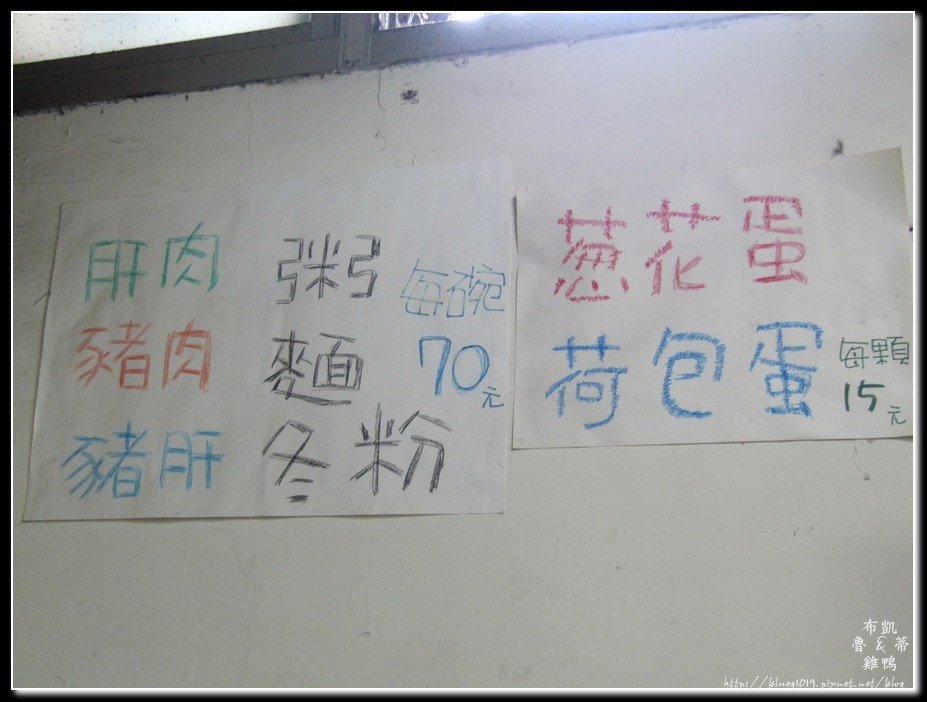 肝肉 粥 每碗
豬肉 麵 70元
豬肝 冬粉
蔥花蛋
荷包蛋 每顆
15元
布凱
魯&蒂
雞鴨
http://blueq1019.pixnet.net/blog